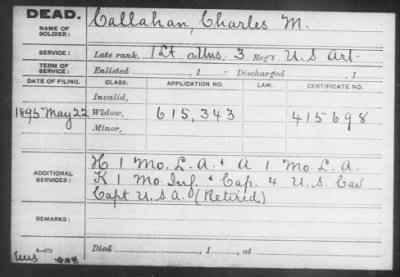 DEAD.
NAME OF SOLDIER: Callahan, Charles M.
SERVICE: Late rank, 1 Lt Co. Uns, 3 Reg't U.S. Art.
TERM OF SERVICE: Enlisted , 1 - Discharged , 1
DATE OF FILING. CLASS. APPLICATION NO. LAW. CERTIFICATE NO.
Invalid,
1895 May 22 Widow, 615,343 415698
Minor,
ADDITIONAL SERVICES: H 1 Mo. L. A. + A 1 Mo. L. A.
K 1 Mo Inf. + Cap. 4 U.S. Cav
Capt U.S.A. (Retired)
REMARKS:
Died , 1 , at